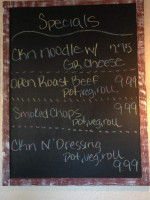 Specials
Ckn Noodle w/ 7.75
Gr. Cheese
Open Roast Beef 9.99
Pot, veg, roll
Smoked Chops 9.99
Pot, veg, roll
Ckn N' Dressing
Pot, veg, roll
9.99